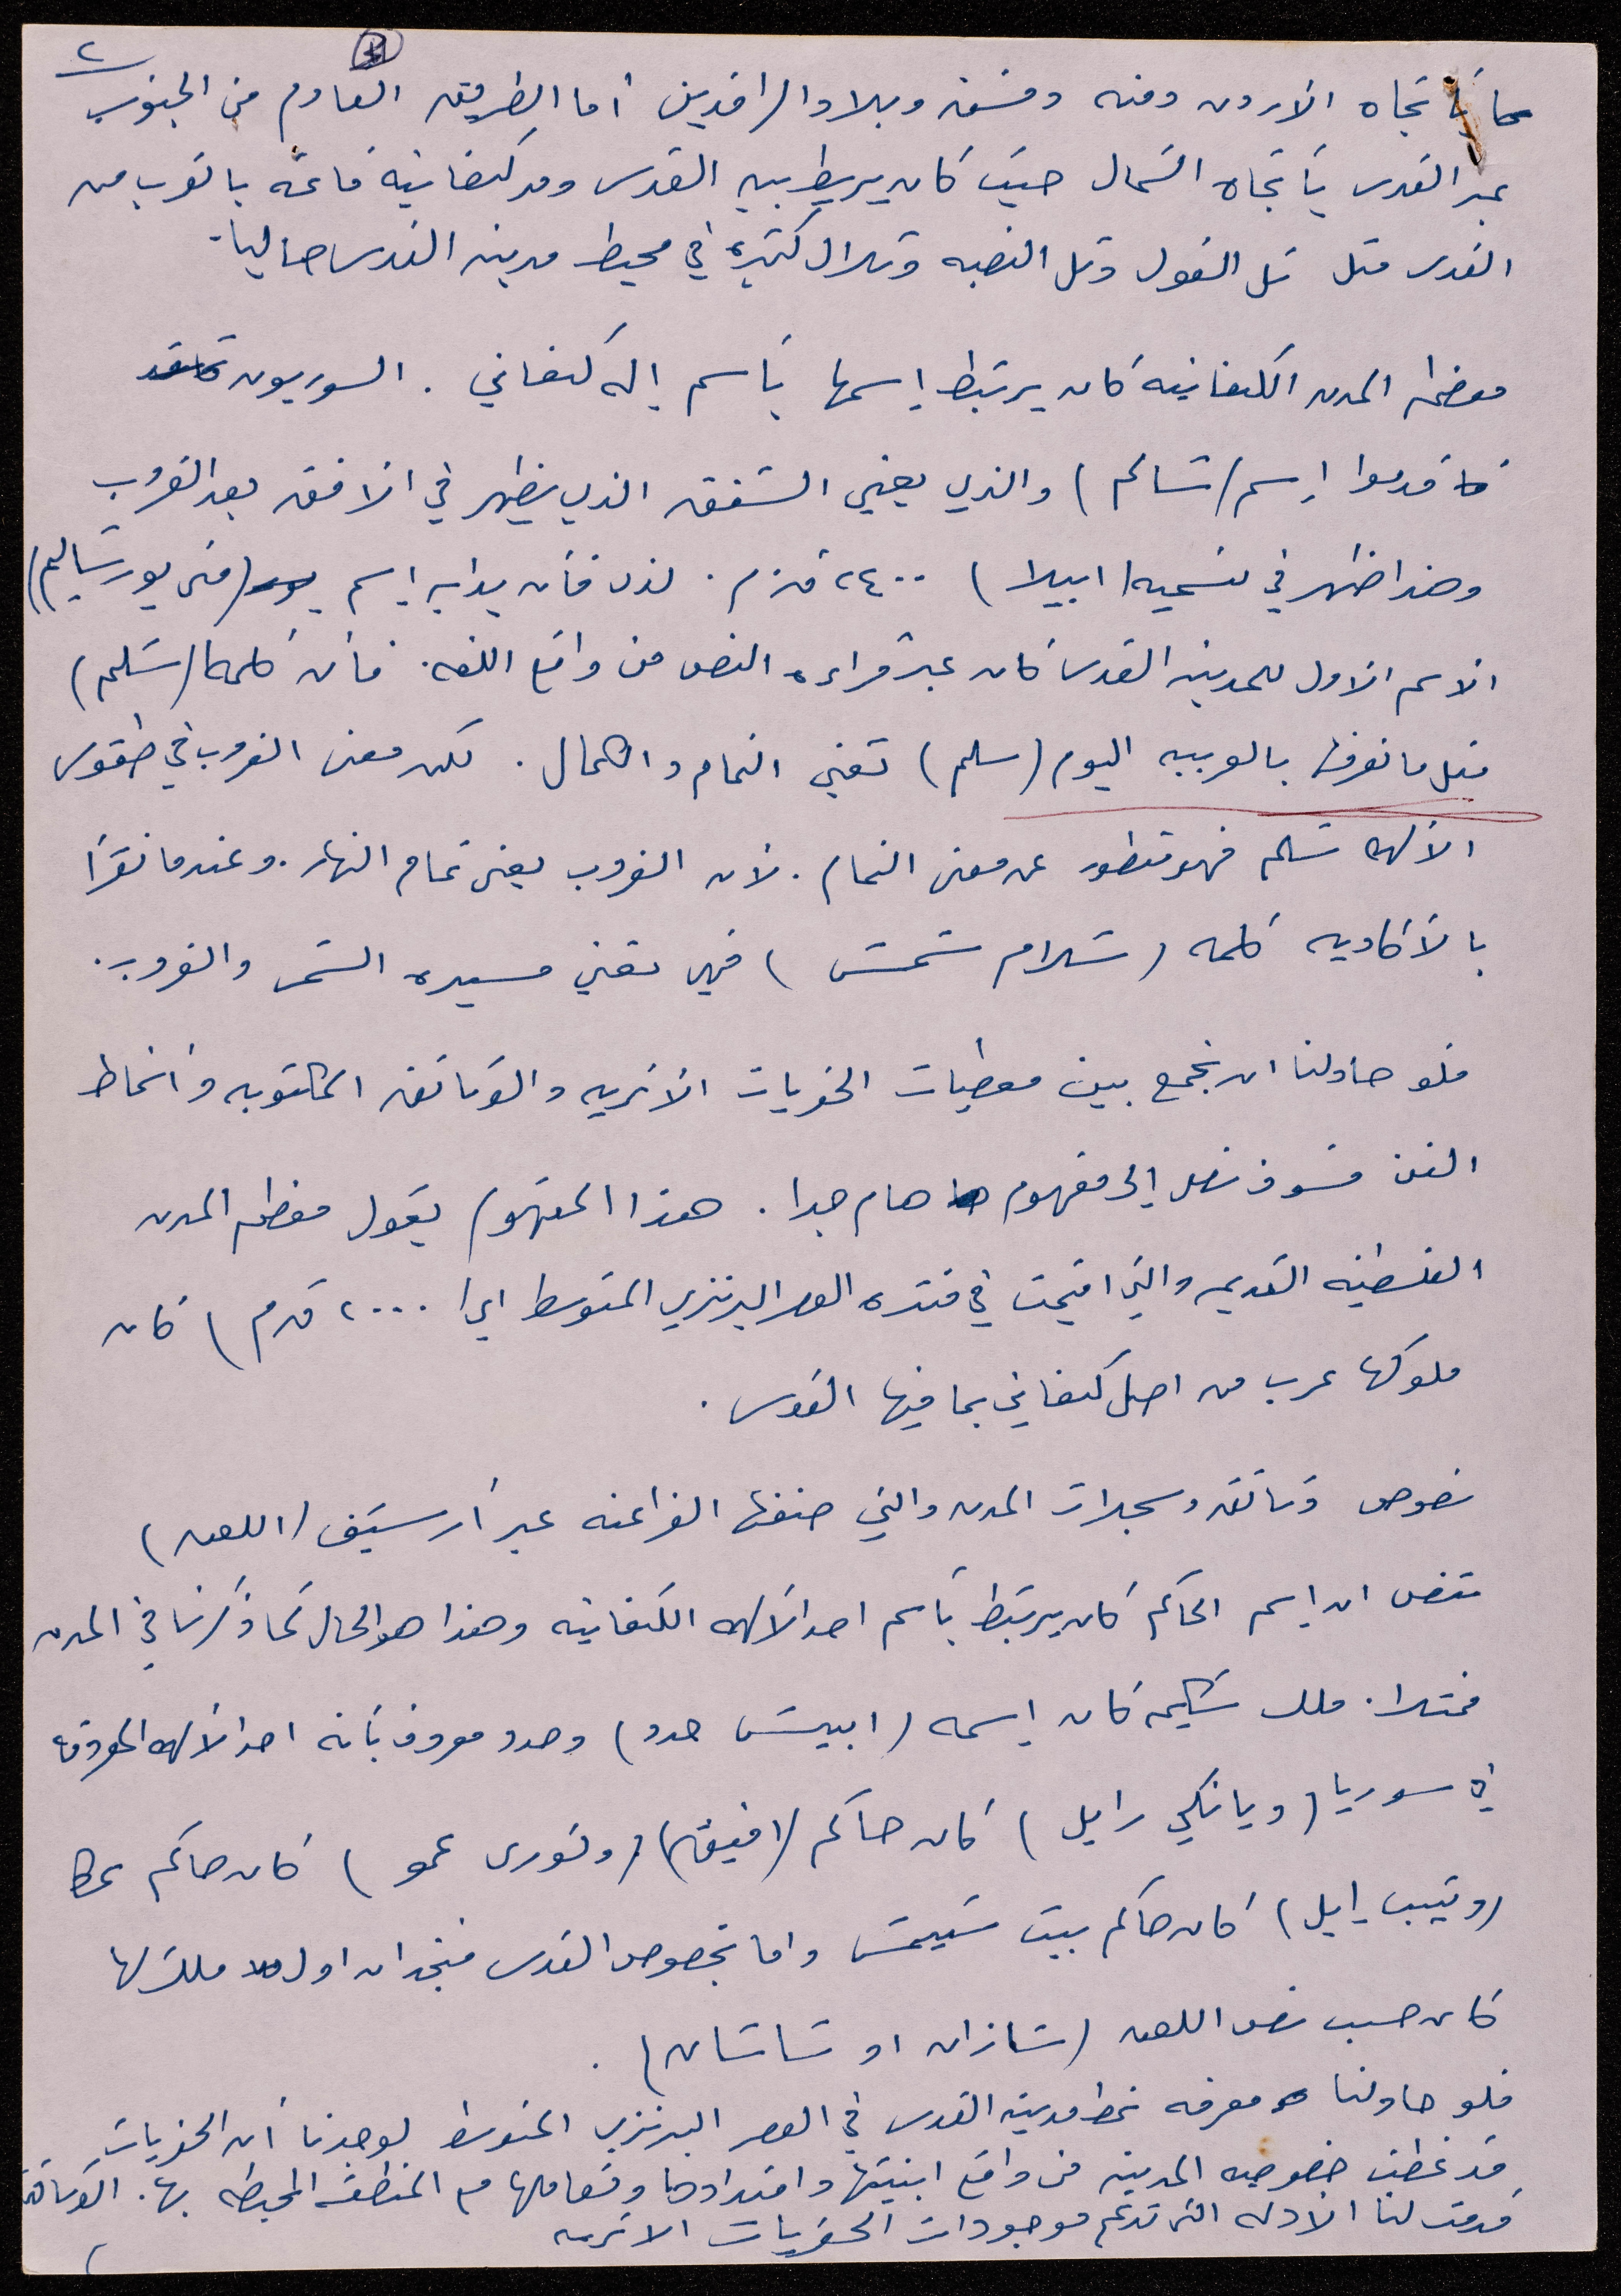 ٢
باتجاه الاردن ومنه دمشق وبلاد الرافدين أما الطريق القادم من الجنوب
عبر القدس بأتجاه الشمال حيث كان يربط بين القدس ومدن كنعانية قائمة بالقرب من
القدس مثل تل الفول وتل النصبه وتلال كثيرة في محيط مدينه القدس حاليا.
معظم المدن الكنعانيه كان يرتبط إسمها بأسم إله كنعاني . السوريون
قدموا إسم (شالم) والذي يعني الشفق الذي يظهر في الافق بعد الغروب
وهذا ظهر في تسمية (ابيلا) ٢٤٠٠ ق.م . لذا فأن بدايه إسم (من يورشاليم)
الاسم الاول للمدينه القدس كان عبر قراءه النص من واقع اللغه. فأن كلمة (شلم)
مثل ما نعرفها بالعربيه اليوم (سلم) تعني التمام والكمال . لكن معنى الغروب في طقوس
الألهه شلم فهو متطور عن معنى التمام . لأن الغروب يعني تمام النهار. وعندما نقرأ
بالأكاديه كلمه (شلام شمش) فهي تعني مسيره الشمس والغروب.
فلو حاولنا ان نجمع بين معطيات الحفريات الأثريه والوثائق المكتوبه وأنماط
الفن فسوف نصل إلى مفهوم هام جدا. هذا المفهوم يقول معظم المدن
الفلسطينه القديمه والتي اقيمت في فتره العصر البرنزي المتوسط اي (٢٠٠٠ ق.م) كان
ملوكها عرب من اصل كنعاني بما فيها القدس .
نصوص وثائق وسجلات المدن والتي صنفها الفراعنه عبر أرسيف (اللعن)
تنص ان إسم الحاكم كان يرتبط بأسم احد الألهه الكنعانيه وهذا هو الحال كما ذكرنا في المدن
فمثلا. ملك شكيم كان إسمه (ابيش هدد) وهدد معروف بأنه احد الألهه المعروفه
في سوريا (ويانكي رايل) كان حاكم (افيق) (وتورى عمو) كان حاكم عكا
(ويتيب إيل) كان حاكم بيت شيمش واما بخصوص القدس فنجد ان اول ملك لها
كان حسب نص اللعن (شازان او شاشان) .
فلو حاولنا معرفه نمط مدينه القدس في العصر البرنزي المتوسط لوجدنا أن الحفريات
قد غطت خصوصيه المدينه من واقع ابنيتها وامتدادها وتعاملها مع المنطقه المحيطه بها. الوثائق
قدمت لنا الادله التي تدعم موجودات الحفريات الاثريه